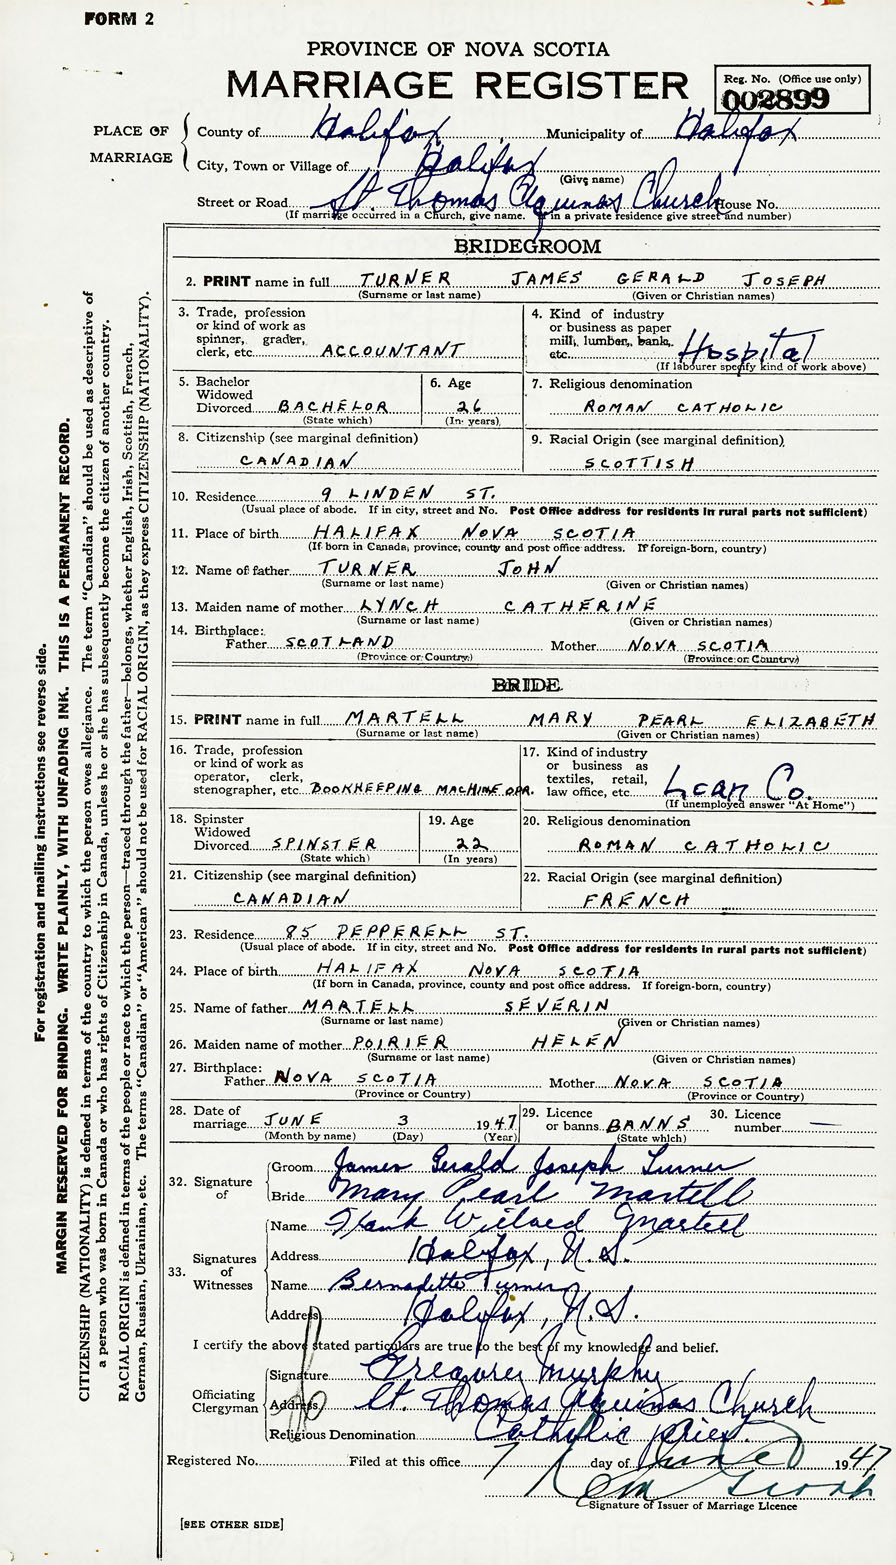 FORM 2
PROVINCE OF NOVA SCOTIA
MARRIAGE REGISTER
Reg. No. (Office use only)
002899
PLACE OF MARRIAGE
County of Halifax, Municipality of Halifax
City, Town or Village of Halifax
(Give name)
Street or Road St. Thomas Aquinas Church House No.
(If marriage occurred in a Church, give name. If in a private residence give street and number)
BRIDEGROOM
2. PRINT name in full TURNER JAMES GERALD JOSEPH
(Surname or last name) (Given or Christian names)
3. Trade, profession
or kind of work as
spinner, grader,
clerk, etc. ACCOUNTANT
4. Kind of industry
or business as paper
mill, lumber, bank,
etc. Hospital
(If labourer specify kind of work above)
5. Bachelor
Widowed
Divorced BACHELOR
(State which)
6. Age
26
(In years)
7. Religious denomination
ROMAN CATHOLIC
8. Citizenship (see marginal definition)
CANADIAN
9. Racial Origin (see marginal definition)
SCOTTISH
10. Residence 9 LINDEN ST.
(Usual place of abode. If in city, street and No. Post Office address for residents in rural parts not sufficient)
11. Place of birth HALIFAX NOVA SCOTIA
(If born in Canada, province, county and post office address. If foreign-born, country)
12. Name of father TURNER JOHN
(Surname or last name) (Given or Christian names)
13. Maiden name of mother LYNCH CATHERINE
(Surname or last name) (Given or Christian names)
14. Birthplace:
Father SCOTLAND Mother NOVA SCOTIA
(Province or Country) (Province or Country)
BRIDE
15. PRINT name in full MARTELL MARY PEARL ELIZABETH
(Surname or last name) (Given or Christian names)
16. Trade, profession
or kind of work as
operator, clerk,
stenographer, etc. BOOKKEEPING MACHINE OPR.
17. Kind of industry
or business as
textiles, retail,
law office, etc. Loan Co.
(If unemployed answer "At Home")
18. Spinster
Widowed
Divorced SPINSTER
(State which)
19. Age
22
(In years)
20. Religious denomination
ROMAN CATHOLIC
21. Citizenship (see marginal definition)
CANADIAN
22. Racial Origin (see marginal definition)
FRENCH
23. Residence 85 PEPPERELL ST.
(Usual place of abode. If in city, street and No. Post Office address for residents in rural parts not sufficient)
24. Place of birth HALIFAX NOVA SCOTIA
(If born in Canada, province, county and post office address. If foreign-born, country)
25. Name of father MARTELL SEVERIN
(Surname or last name) (Given or Christian names)
26. Maiden name of mother POIRIER HELEN
(Surname or last name) (Given or Christian names)
27. Birthplace:
Father NOVA SCOTIA Mother NOVA SCOTIA
(Province or Country) (Province or Country)
28. Date of
marriage JUNE 3 1947
(Month by name) (Day) (Year)
29. Licence
or banns BANNS
(State which)
30. Licence
number —
32. Signature of
Groom James Gerald Joseph Turner
Bride Mary Pearl Martell
33. Signatures of Witnesses
Name Frank Willard Martell
Address Halifax, N.S.
Name Bernadette Turner
Address Halifax, N.S.
I certify the above stated particulars are true to the best of my knowledge and belief.
Officiating Clergyman
Signature Gregory Murphy
Address St. Thomas Aquinas Church
Religious Denomination Catholic priest.
Registered No. Filed at this office 7 day of June 1947
Signature of Issuer of Marriage Licence
[SEE OTHER SIDE]
For registration and mailing instructions see reverse side.
MARGIN RESERVED FOR BINDING. WRITE PLAINLY, WITH UNFADING INK. THIS IS A PERMANENT RECORD.
CITIZENSHIP (NATIONALITY) is defined in terms of the country to which the person owes allegiance. The term "Canadian" should be used as descriptive of
a person who was born in Canada or who has rights of Citizenship in Canada, unless he or she has subsequently become the citizen of another country.
RACIAL ORIGIN is defined in terms of the people or race to which the person—traced through the father—belongs, whether English, Irish, Scottish, French,
German, Russian, Ukrainian, etc. The terms "Canadian" or "American" should not be used for RACIAL ORIGIN, as they express CITIZENSHIP (NATIONALITY).